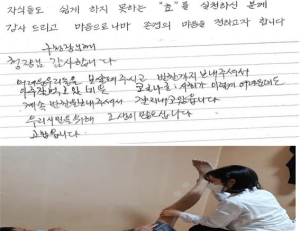 자식들도 쉽게 하지 못하는 "효"를 실천하신 분께
감사 드리고 마음으로나마 존경의 마음을 전하고자 합니다
구청장님께
청장님 감사합니다
어려운 우리들을 보살펴주시고 반찬까지 보내주셔서
아주 잘 먹고 있는데 코로나로 사회가 이렇게 어려운데도
계속 반찬을 보내주셔서 잘 지내고 있습니다
우리 시민을 위해 고생이 많으십니다
고맙습니다